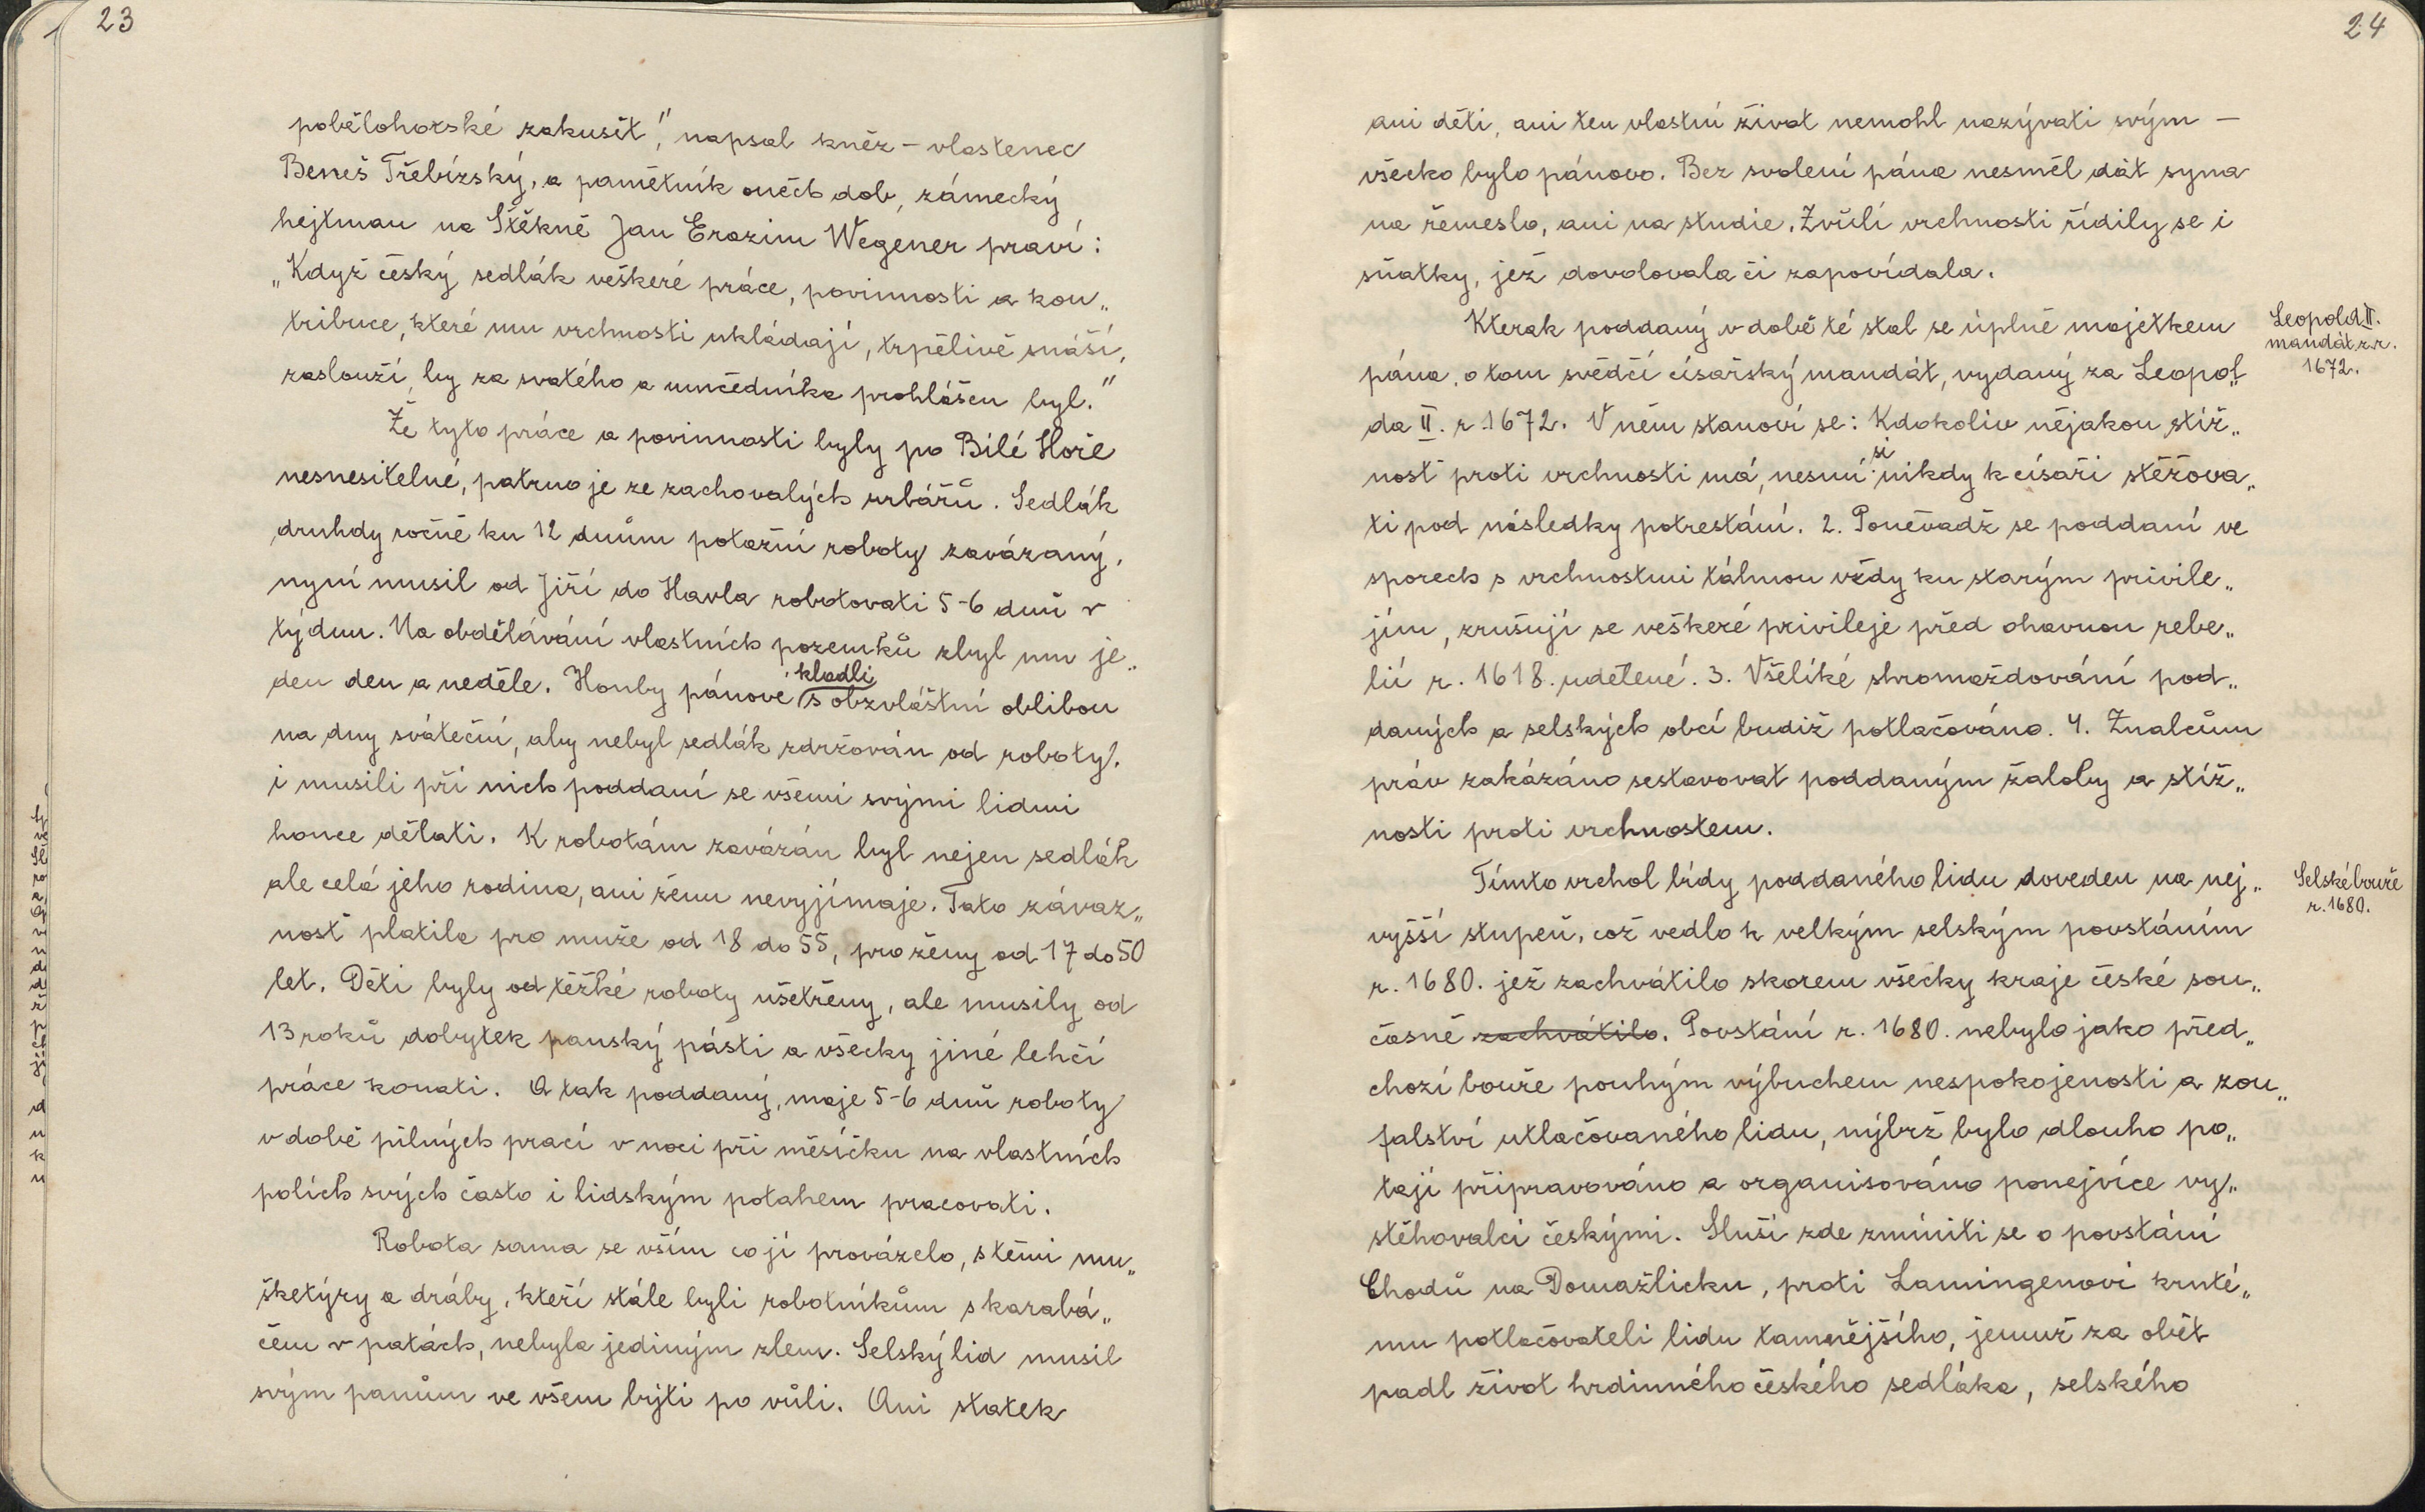 23
pobělohorské zakusit," napsal kněz - vlastenec
Beneš Třebízský, a pamětník oněch dob, zámecký
hejtman na Štěkně Jan Erazim Wegener praví:
„Když český sedlák veškeré práce, povinnosti a kon„
tribuce, které mu vrchnosti ukládají, trpělivě snáší,
zaslouží, by za svatého a umčedníka prohlášen byl."
Že tyto práce a povinnosti byly po Bílé Hoře
nesnesitelné, patrno je ze zachovalých urbářů. Sedlák
druhdy ročně ku 12 dnům potažní roboty zavázaný,
nyní musil od Jiří do Havla robotovati 5-6 dnů v
týdnu. Na obdělávání vlastních pozemků zbyl mu je„
den den a neděle. Honby pánové kladli s obzvláštní oblibou
na dny sváteční, aby nebyl sedlák zdržován od roboty.
i musili při nich poddaní se všemi svými lidmi
honce dělati. K robotám zavázán byl nejen sedlák
ale celá jeho rodina, ani ženu nevyjímaje. Tato závaz„
nost platila pro muže od 18 do 55, pro ženy od 17 do 50
let. Děti byly od těžké roboty ušetřeny, ale musily od
13 roků dobytek panský pásti a všecky jiné lehčí
práce konati. A tak poddaný, maje 5-6 dnů roboty
v době pilných prací v noci při měsíčku na vlastních
polích svých často i lidským potahem pracovati.
Robota sama se vším co jí provázelo, s těmi mu„
šketýry a dráby, kteří stále byli robotníkům s karabá„
čem v patách, nebyla jediným zlem. Selský lid musil
svým panům ve všem býti po vůli. Ani statek
24
ani děti, ani ten vlastní život nemohl nazývati svým -
všecko bylo pánovo. Bez svolení pána nesměl dát syna
na řemeslo, ani na studie. Zvůlí vrchnosti řídily se i
sňatky, jež dovolovala či zapovídala.
Kterak poddaný v době té stal se úplně majetkem
pána, o tom svědčí císařský mandát, vydaný za Leopol„
da II. r. 1672. V něm stanoví se: Kdokoliv nějakou stíž„
nost proti vrchnosti má, nesmí si nikdy k císaři stěžova„
ti pod následky potrestání. 2. Poněvadž se poddaní ve
sporech s vrchnostmi táhnou vždy ku starým privile„
jím, zrušují se veškeré privileje před ohavnou rebe„
lií r. 1618. udělené. 3. Všeliké shromažďování pod„
daných a selských obcí budiž potlačováno. 4. Znalcům
práv zakázáno sestavovat poddaným žaloby a stíž„
nosti proti vrchnostem.
Tímto vrchol bídy poddaného lidu doveden na nej„
vyšší stupeň, což vedlo k velkým selským povstáním
r. 1680. jež zachvátilo skorem všecky kraje české sou„
časně zachvátilo. Povstání r. 1680. nebylo jako před„
chozí bouře pouhým výbuchem nespokojenosti a zou„
falství utlačovaného lidu, nýbrž bylo dlouho po„
tají připravováno a organisováno ponejvíce vy„
stěhovalci českými. Sluší zde zmíniti se o povstání
Chodů na Domažlicku, proti Lamingenovi kruté„
mu potlačovateli lidu tamnějšího, jemuž za oběť
padl život hrdinného českého sedláka, selského
Leopold II.
mandát z r.
1672.
Selské bouře
r. 1680.